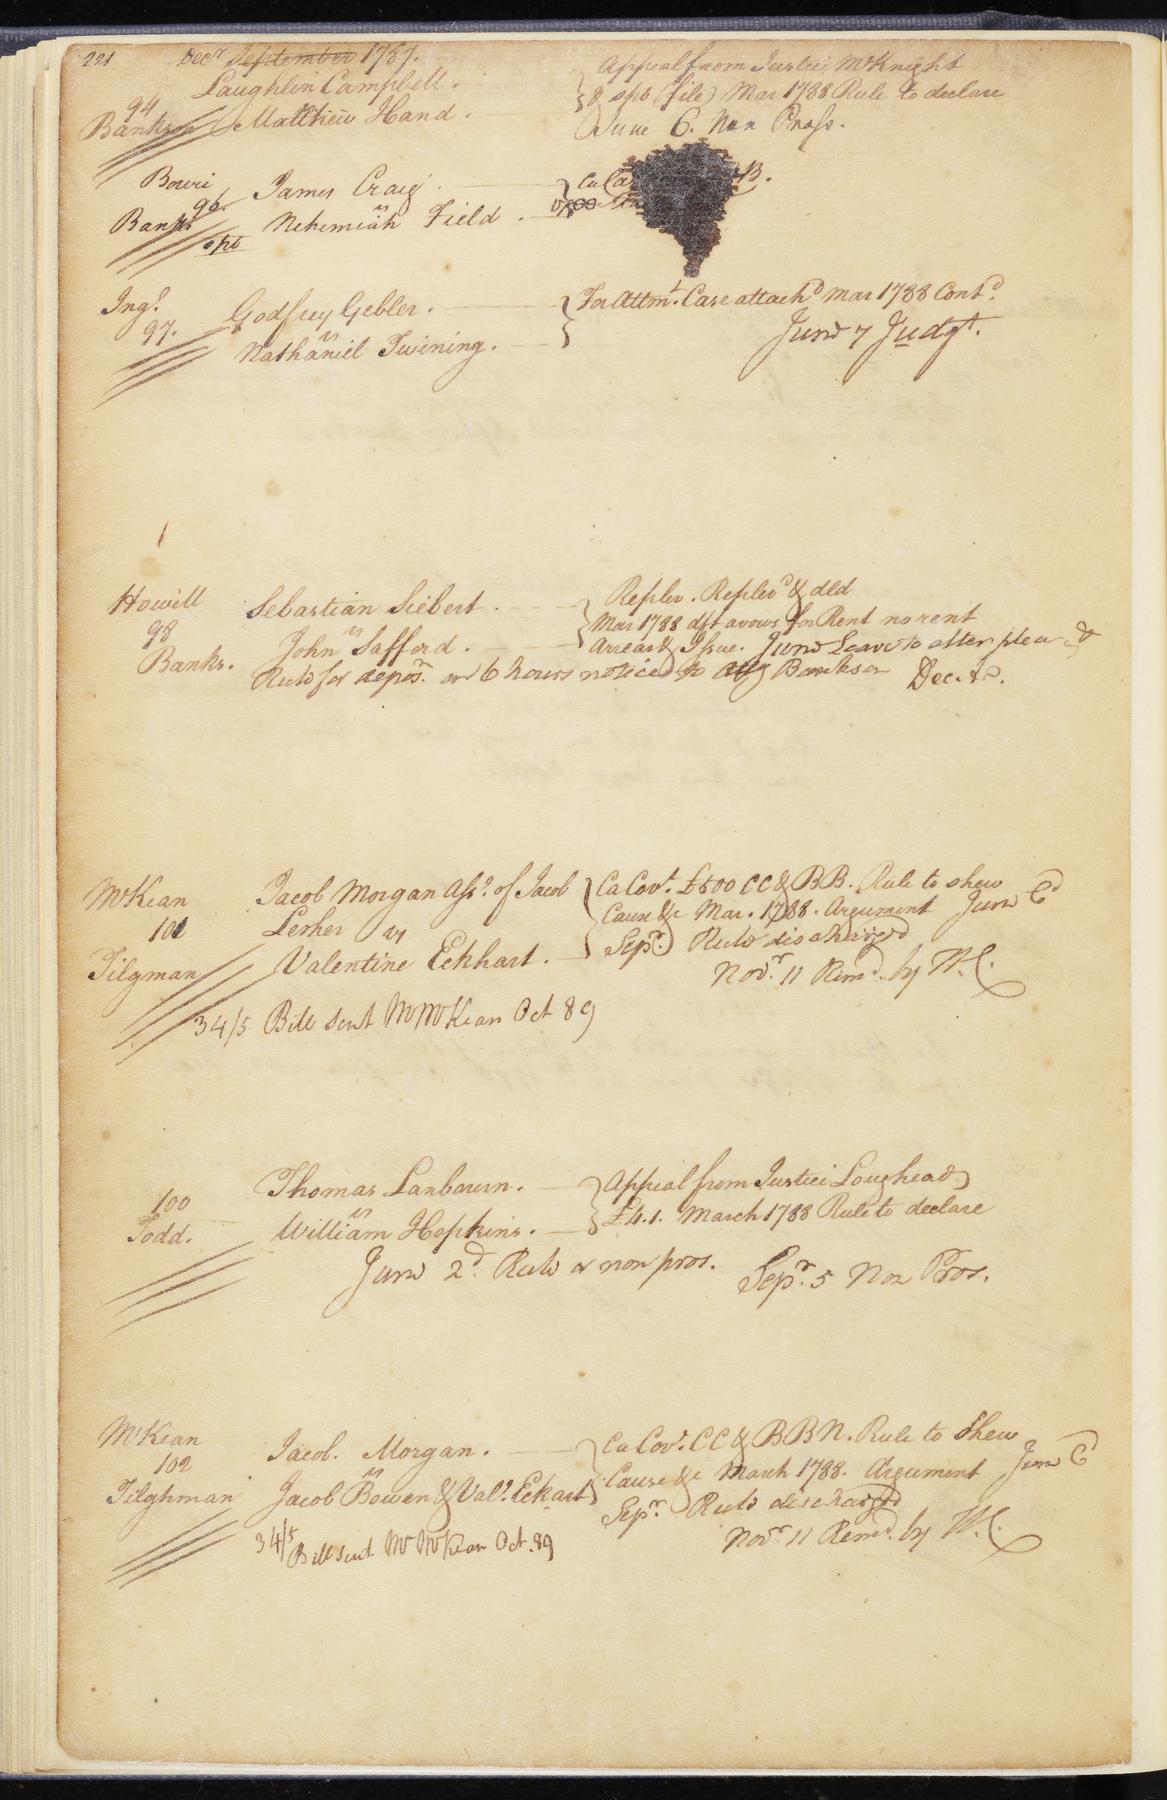 221 Decr September 1787.
Laughlin Campbell. Appeal from Justice McKnight
94 & spb (file) Mar 1788 Rule to declare
Bankson Matthew Hand. June 6. Non Pross.
Bowri James Craig. Ca Ca B.
96. vs
Banks Nehemiah Field.
spb
Ingl. Godfrey Gebler. For Attmt. Case attachd Mar 1788 Contd.
97. vs June 7 Judgt.
Nathaniel Twining.
Howell Sebastian Siebert. Replev. Replevd & dld
98 vs Mar 1788 dft avows for Rent no rent
John Safford. arrear & Issue. June Leave to alter plea &
Banks. Rule for depos. on 6 hours notice to Bankson Dec. &c.
McKean Jacob Morgan Asse. of Jacob Ca Covt. £500 CC & BB. Rule to shew
101 Lesher vs Cause &c Mar. 1788. Argument June C
Tilgman Valentine Eckhart. Sepr. Rule discharged
Novr. 11 Remd. by W.C.
34/5 Bill sent Mr McKean Oct 89
Thomas Lanbourn. Appeal from Justice Loughead
100 vs £4.1. March 1788 Rule to declare
Todd. William Hopkins.
June 2d. Rule or non pros. Sepr. 5 Non Pros.
McKean Jacob. Morgan. Ca Covt. CC & BBN. Rule to Shew
102 vs Cause &c March 1788. Argument June C
Tilghman Jacob Bowen & Vale. Eckart Sepr. Rule discharged
34/5 Novr. 11 Remd. by W.C.
Bill sent Mr McKean Oct. 89